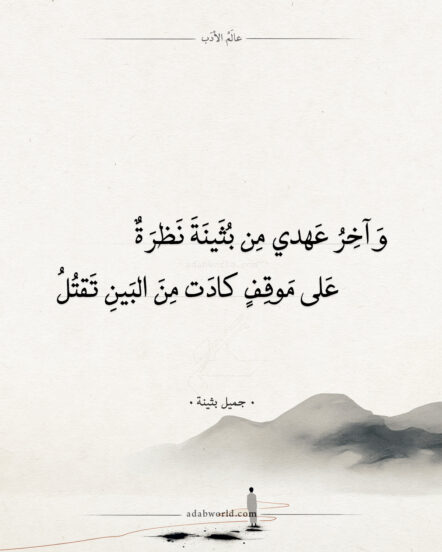 عالَمُ الأدَب
وَآخِرُ عَهدي مِن بُثَينَةَ نَظرَةٌ
عَلى مَوقِفٍ كادَت مِنَ البَينِ تَقتُلُ
• جميل بثينة •
adabworld.com